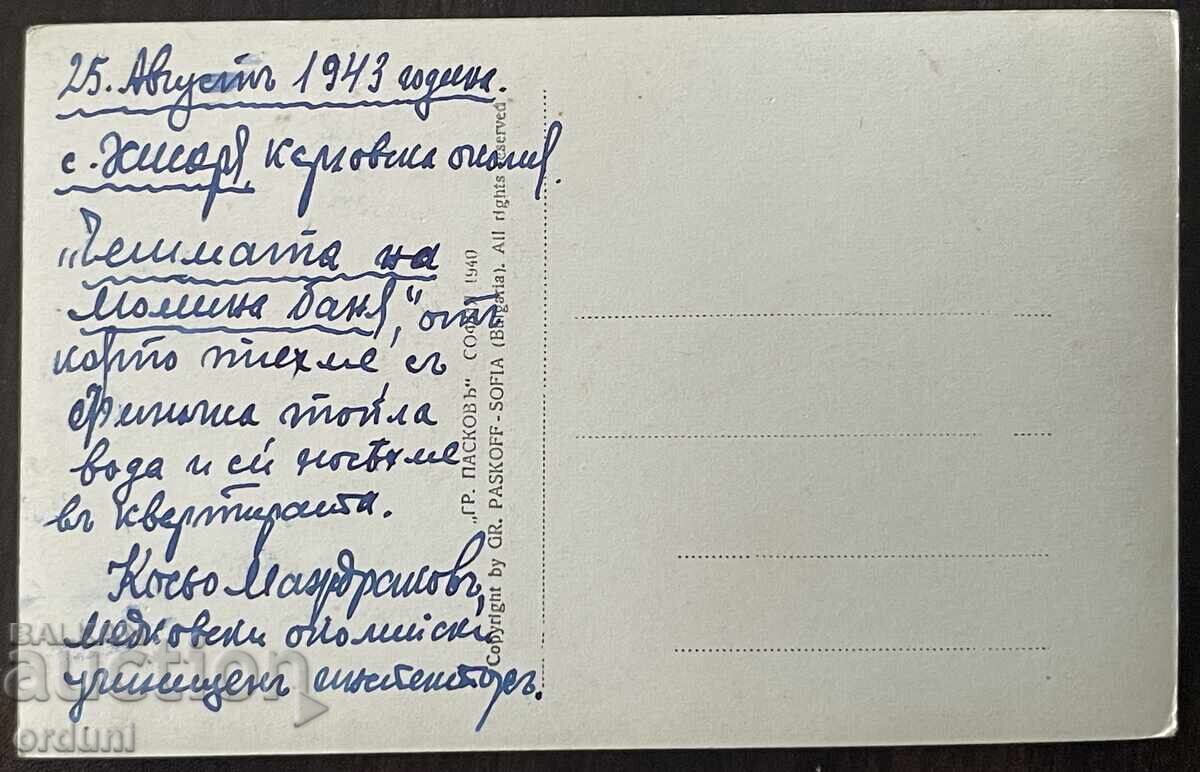 25. Августъ 1943 година.
с. Хисаря, Карловска околия.
„Чешмата на
Момина баня“, отъ
която пиехме, съ
вода и си носѣхме
въ квартирата.
Косьо Мандраковъ,
околийски
училищенъ инспекторъ.
„ГР. ПАСКОВЪ“ СОФИЯ 1940
Copyright by GR. PASKOFF - SOFIA (Bulgaria). All rights reserved
BALKAN
auction
orduni